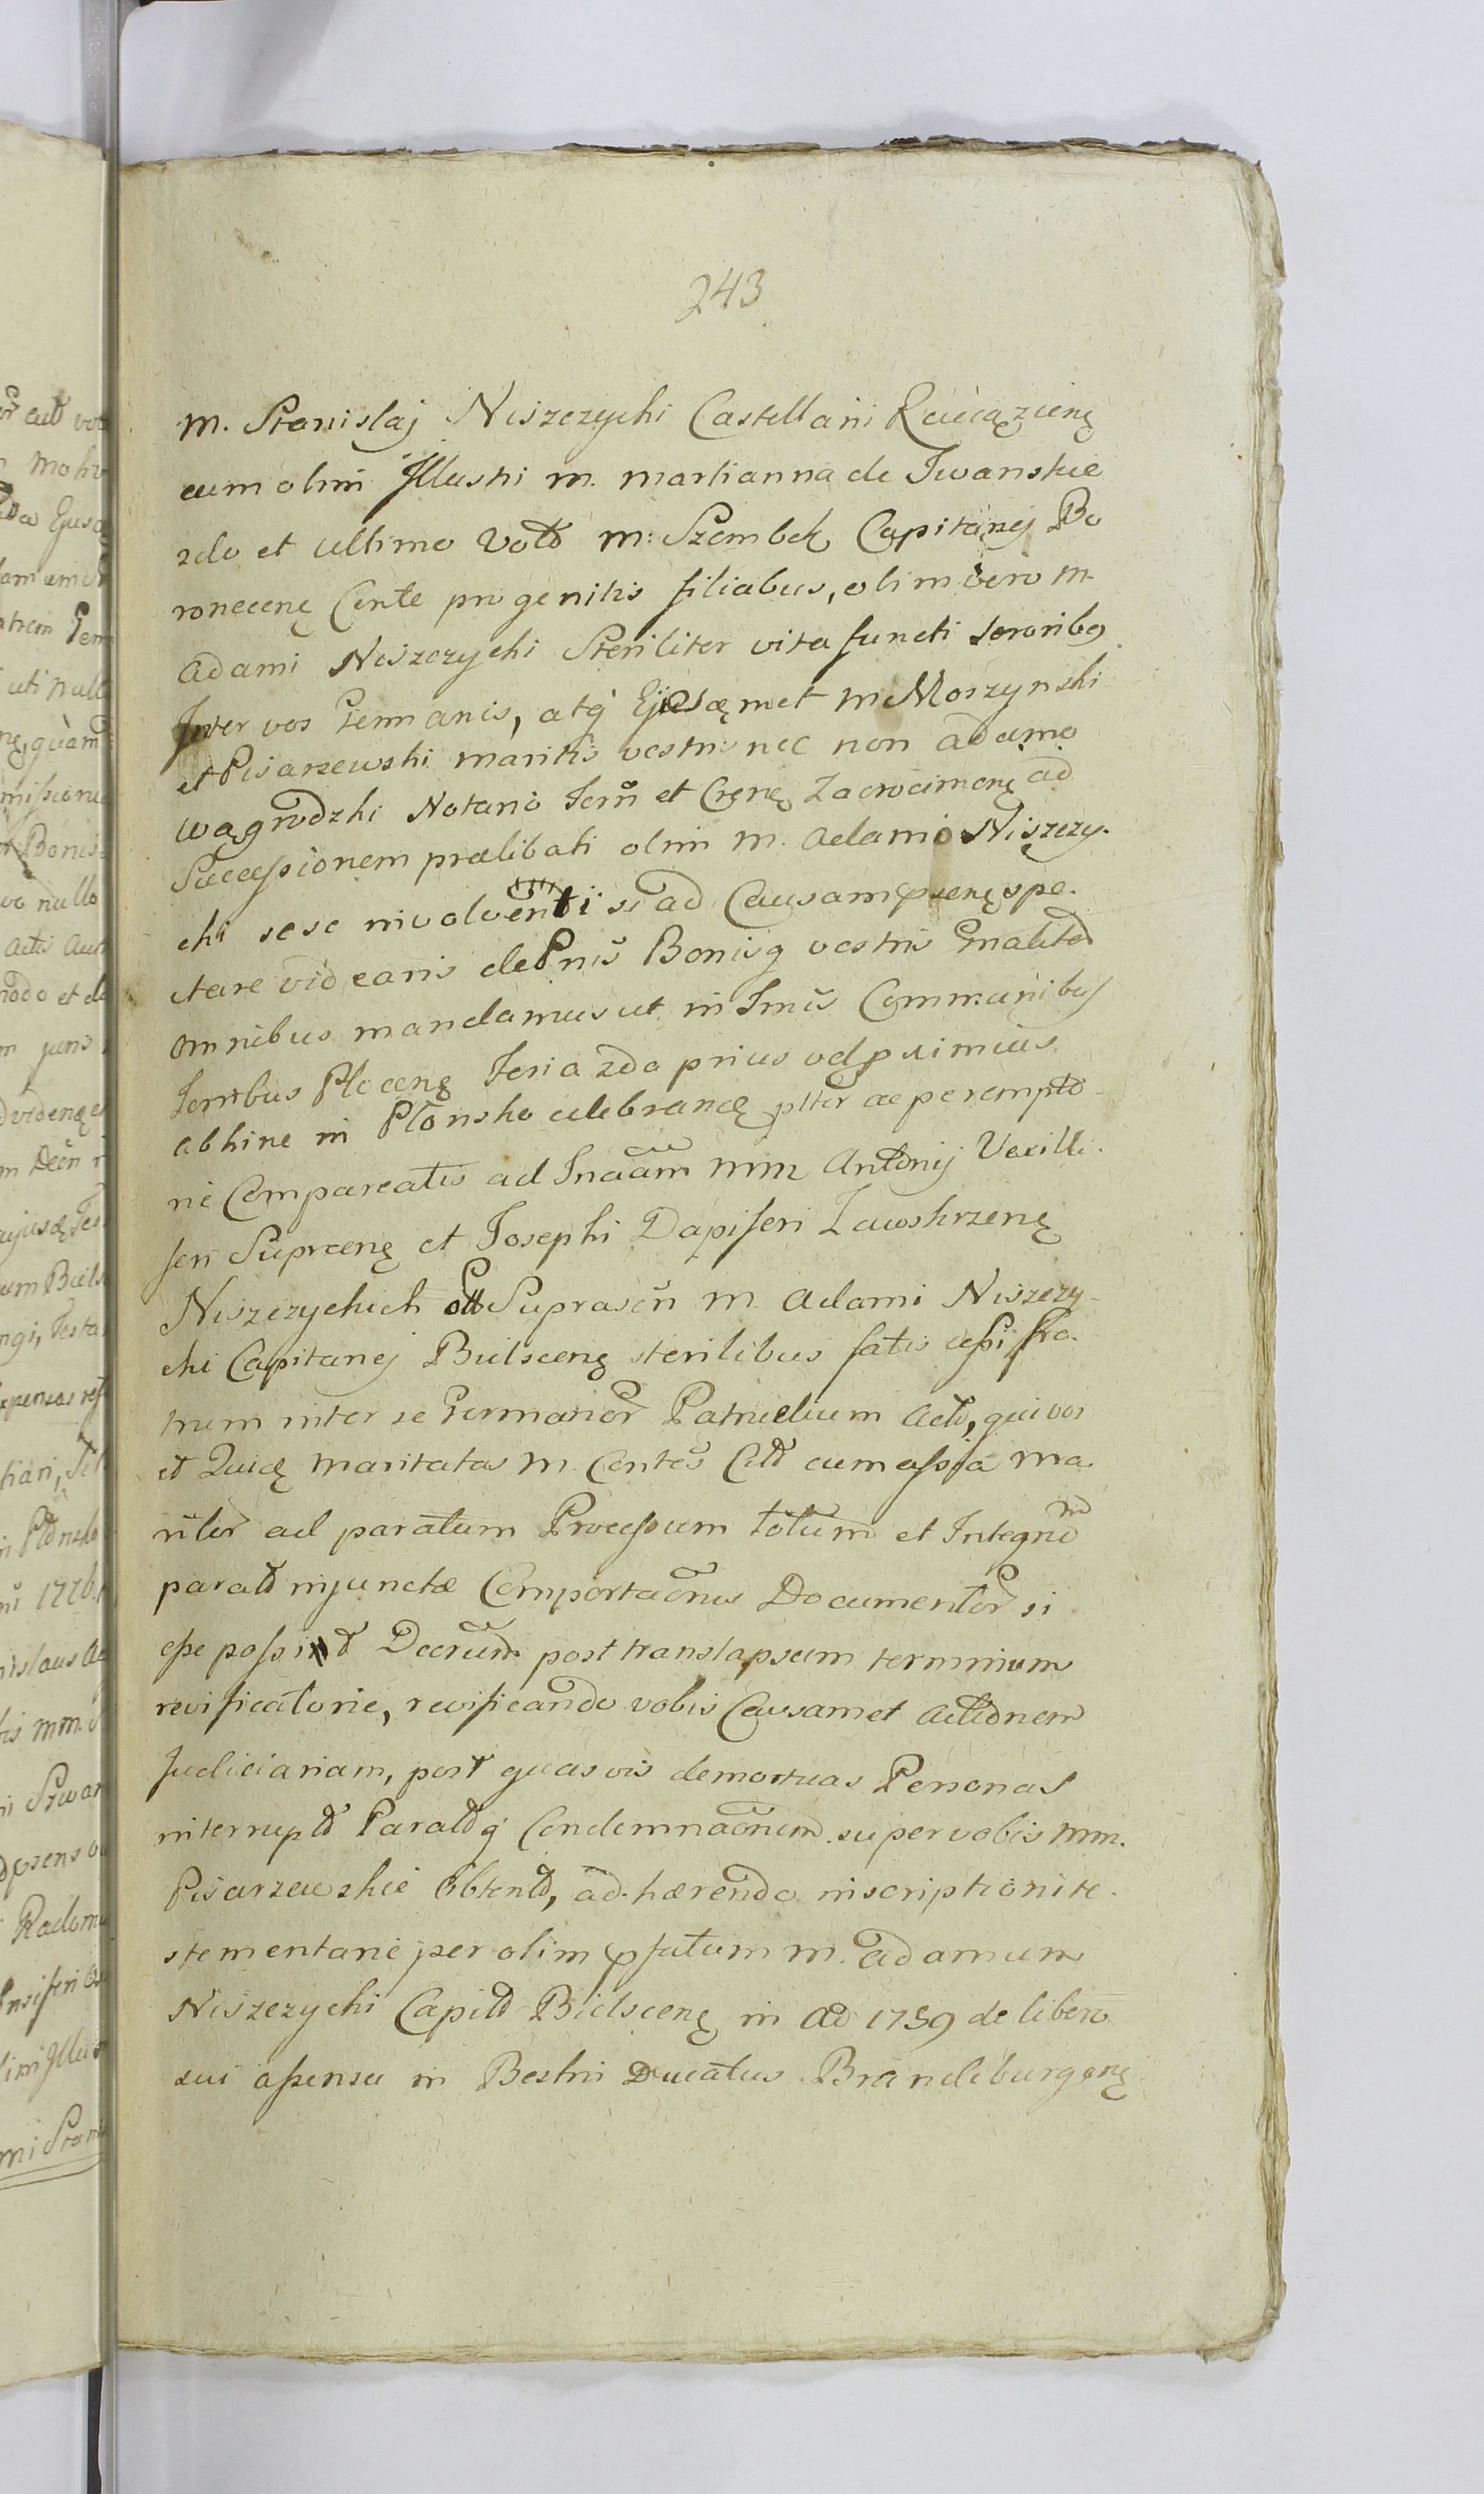 243
M. Stanislaj Niszczychi Castellani Raciązienę
cum olim Illustri M. Martianna de Iwanskie
2do et ultimo Votõ M: Szembek Capitanej Bo
ronecenę Conte progenitis filiabus, olim vero M.
Adami Niszczychi Steriliter vita functi Sororibq
Inter vos Germanis, atq́ Ejusdęmet M Morzynski
et Pisarzewski maritis vestris nec non Adamo
Wągrodzki Notario Terrũ et Cręnę Zacrocimenę ad
Successionem prælibati olim M. Adami Niszczy-
chi sese involventi si ad Causam pnenę spe-
ctare videaris de Pnis̃ Bonisq vestris gnalited
omnibus mandamus ut in Tmis̃ Communibus
Terribus Plocenę Feria 2da prius vel proximius
abhinc in Płonsko celebrandę pltter ac perempto-
rie Compareatis ad Inãam MM Antonij Vexilli-
feri Suprcenę et Josephi Dapiferi Zawskrzenę
Niszczychich olł Suprascr̃i M. Adami Niszczy-
chi Capitanej Bielscenę sterilibus fatis cessi fra-
trum inter se Germanor̃ Patruelium Actõ, qui vos
et Quidę maritatas M. Contes̃ Citõ cum assiã ma-
ritlr ad paratum Processum totum et Integrũm
paratõ injunctæ Comportãonis Documentor̃ si
esse possint Decrũm post translapsum terminum
reificatorie, reificando vobis Causam et Actiõnem
Judiciariam, post quasvis demortuas Personas
interruptõ Paratõq́ Condemnãonem super vobis MM.
Pisarzewskie obtentõ, ad-hærendo inscriptioni te-
stementarie per olim pfatum M. Adamum
Niszczychi Capitõ Bielscenę in Aõ 1759 de libero
sui assensu in Bestri Ducatus Brandeburgenę